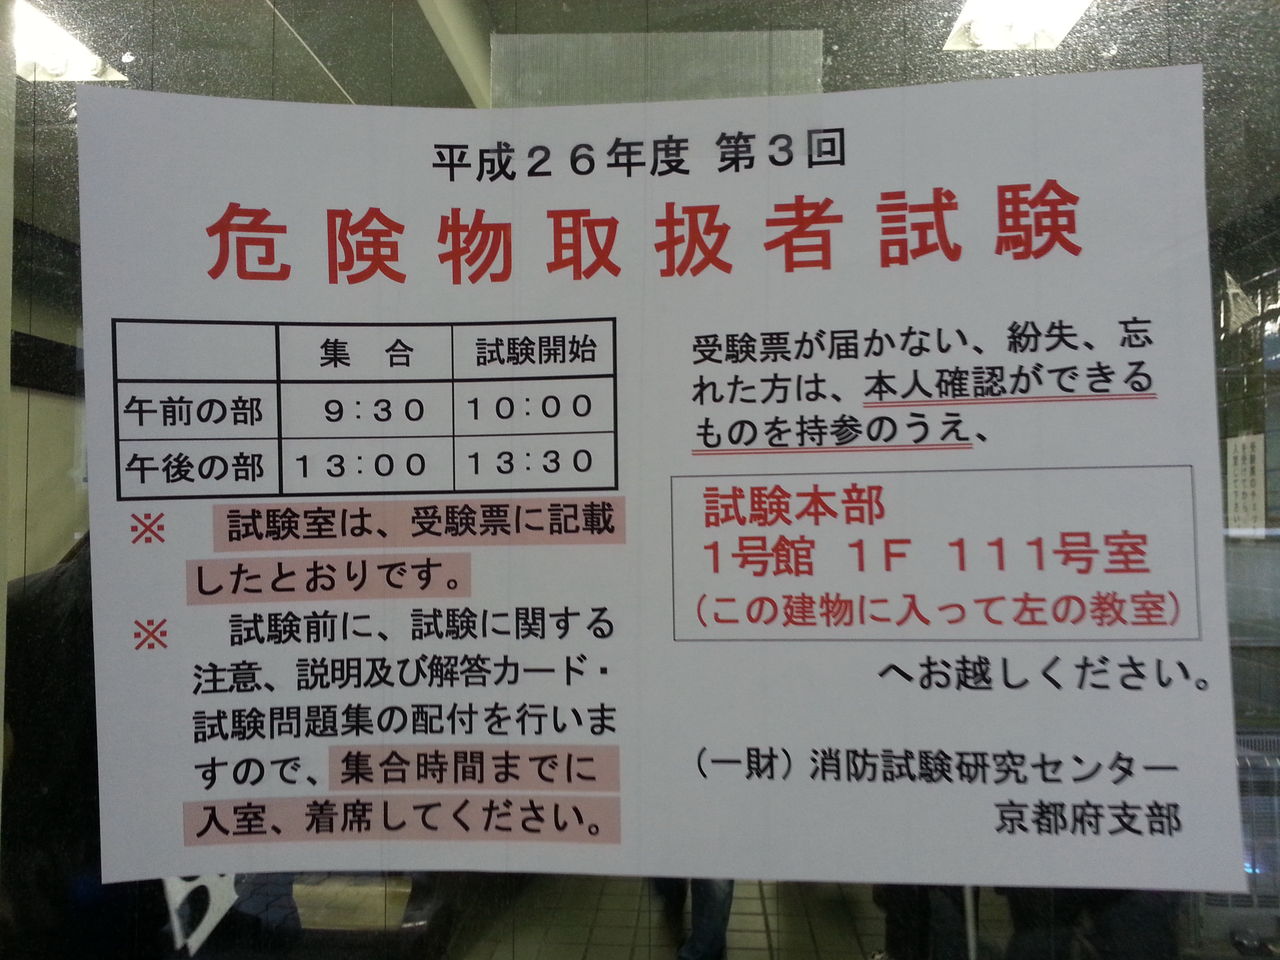 平成２６年度 第３回
危険物取扱者試験
集 合 試験開始
午前の部 9:30 10:00
午後の部 13:00 13:30
※ 試験室は、受験票に記載
したとおりです。
※ 試験前に、試験に関する
注意、説明及び解答カード・
試験問題集の配付を行いま
すので、集合時間までに
入室、着席してください。
受験票が届かない、紛失、忘
れた方は、本人確認ができる
ものを持参のうえ、
試験本部
１号館 １Ｆ １１１号室
（この建物に入って左の教室）
へお越しください。
（一財）消防試験研究センター
京都府支部